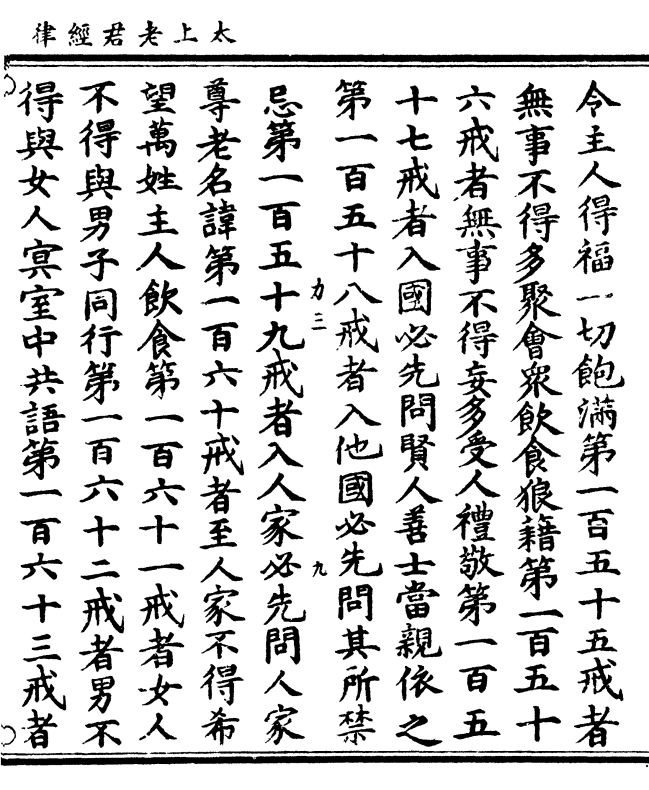 太上老君經律
令主人得福一切飽滿第一百五十五戒者
無事不得多聚會衆飲食狼藉第一百五十
六戒者無事不得妄多受人禮敬第一百五
十七戒者入國必先問賢人善士當親依之
第一百五十八戒者入他國必先問其所禁
力三 九
忌第一百五十九戒者入人家必先問人家
尊老名諱第一百六十戒者至人家不得希
望萬姓主人飲食第一百六十一戒者女人
不得與男子同行第一百六十二戒者男不
得與女人㝠室中共語第一百六十三戒者